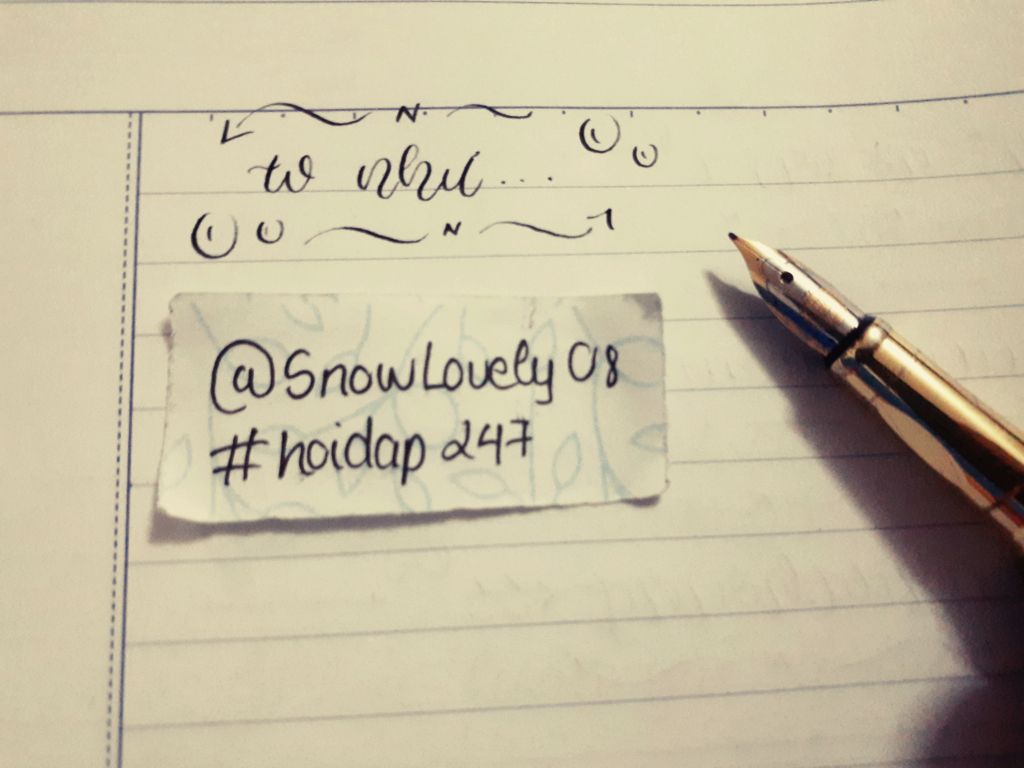 to như...
@SnowLovely08
#hoidap247